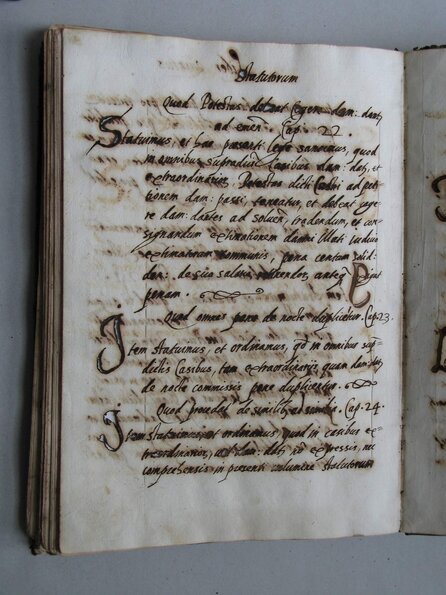 Statutorum
Quod Potestas debeat cogere dam: dantes
ad emen: Cap. 22.
Statuimus, et hac presenti lege sancimus, quod
in omnibus supradictis Casibus dam: dati, et
extraordinarijs, Potestas dicti Castri ad peti
tionem dam: passi, teneatur, et debeat coge
re dam: dantes ad solven: tradendum, et con
signandum extimationem damni illati
extimatorum communis, pena centum solid:
den: de suo salario
penam.
Quod omnes pene de nocte duplicetur. Cap. 23.
Item statuimus, et ordinamus, qd in omnibus sup
dictis Casibus, tam extraordinarijs, quam dam: dati,
de nocte commissis pene duplicetur.
Quod procedat de similib: ad similia. Cap. 24.
Item statuimus, et ordinamus, quod in casibus ex=
traordinarijs, ac dam: dati, nõ expressis, nec
comprehensis in presenti volumine statutorum